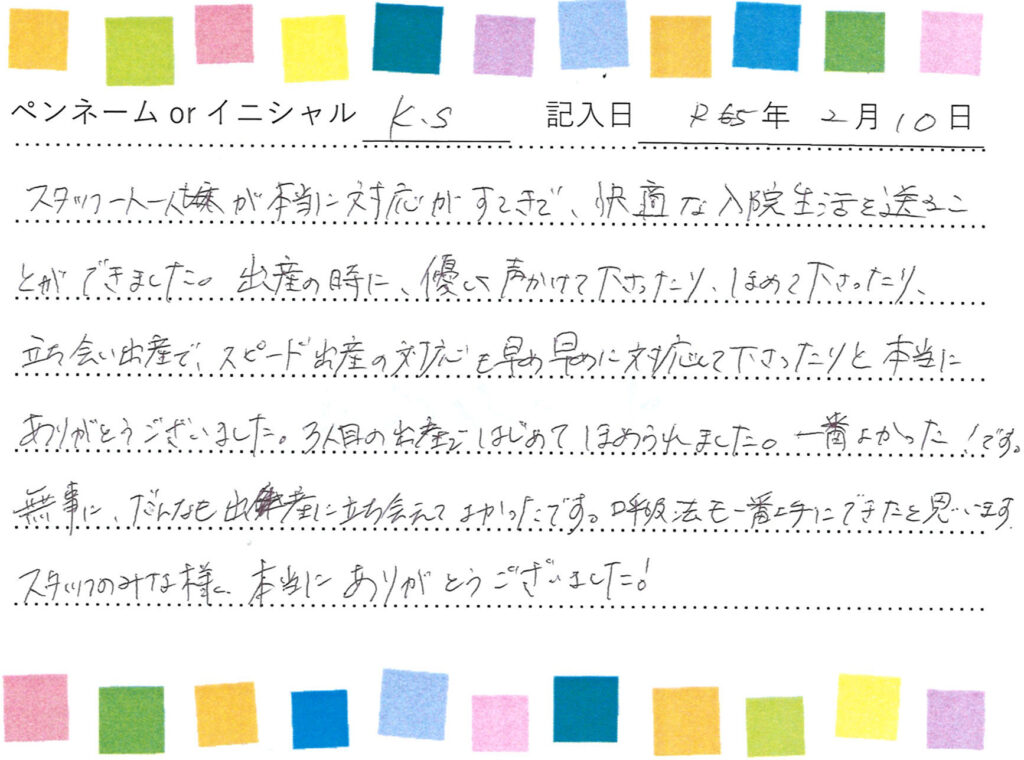 ペンネーム or イニシャル K.S 記入日 R5年 2月10日
スタッフ一人一人様が本当に対応がすてきで、快適な入院生活を送るこ
とができました。出産の時に、優しく声かけて下さったり、ほめて下さったり、
立ち会い出産で、スピード出産の対応も早め早めに対応して下さったりと本当に
ありがとうございました。3人目の出産ではじめてほめられました。一番よかった!です。
無事に、だんなも出産に立ち会えてよかったです。呼吸法も一番上手にできたと思います
スタッフのみな様、本当にありがとうございました!